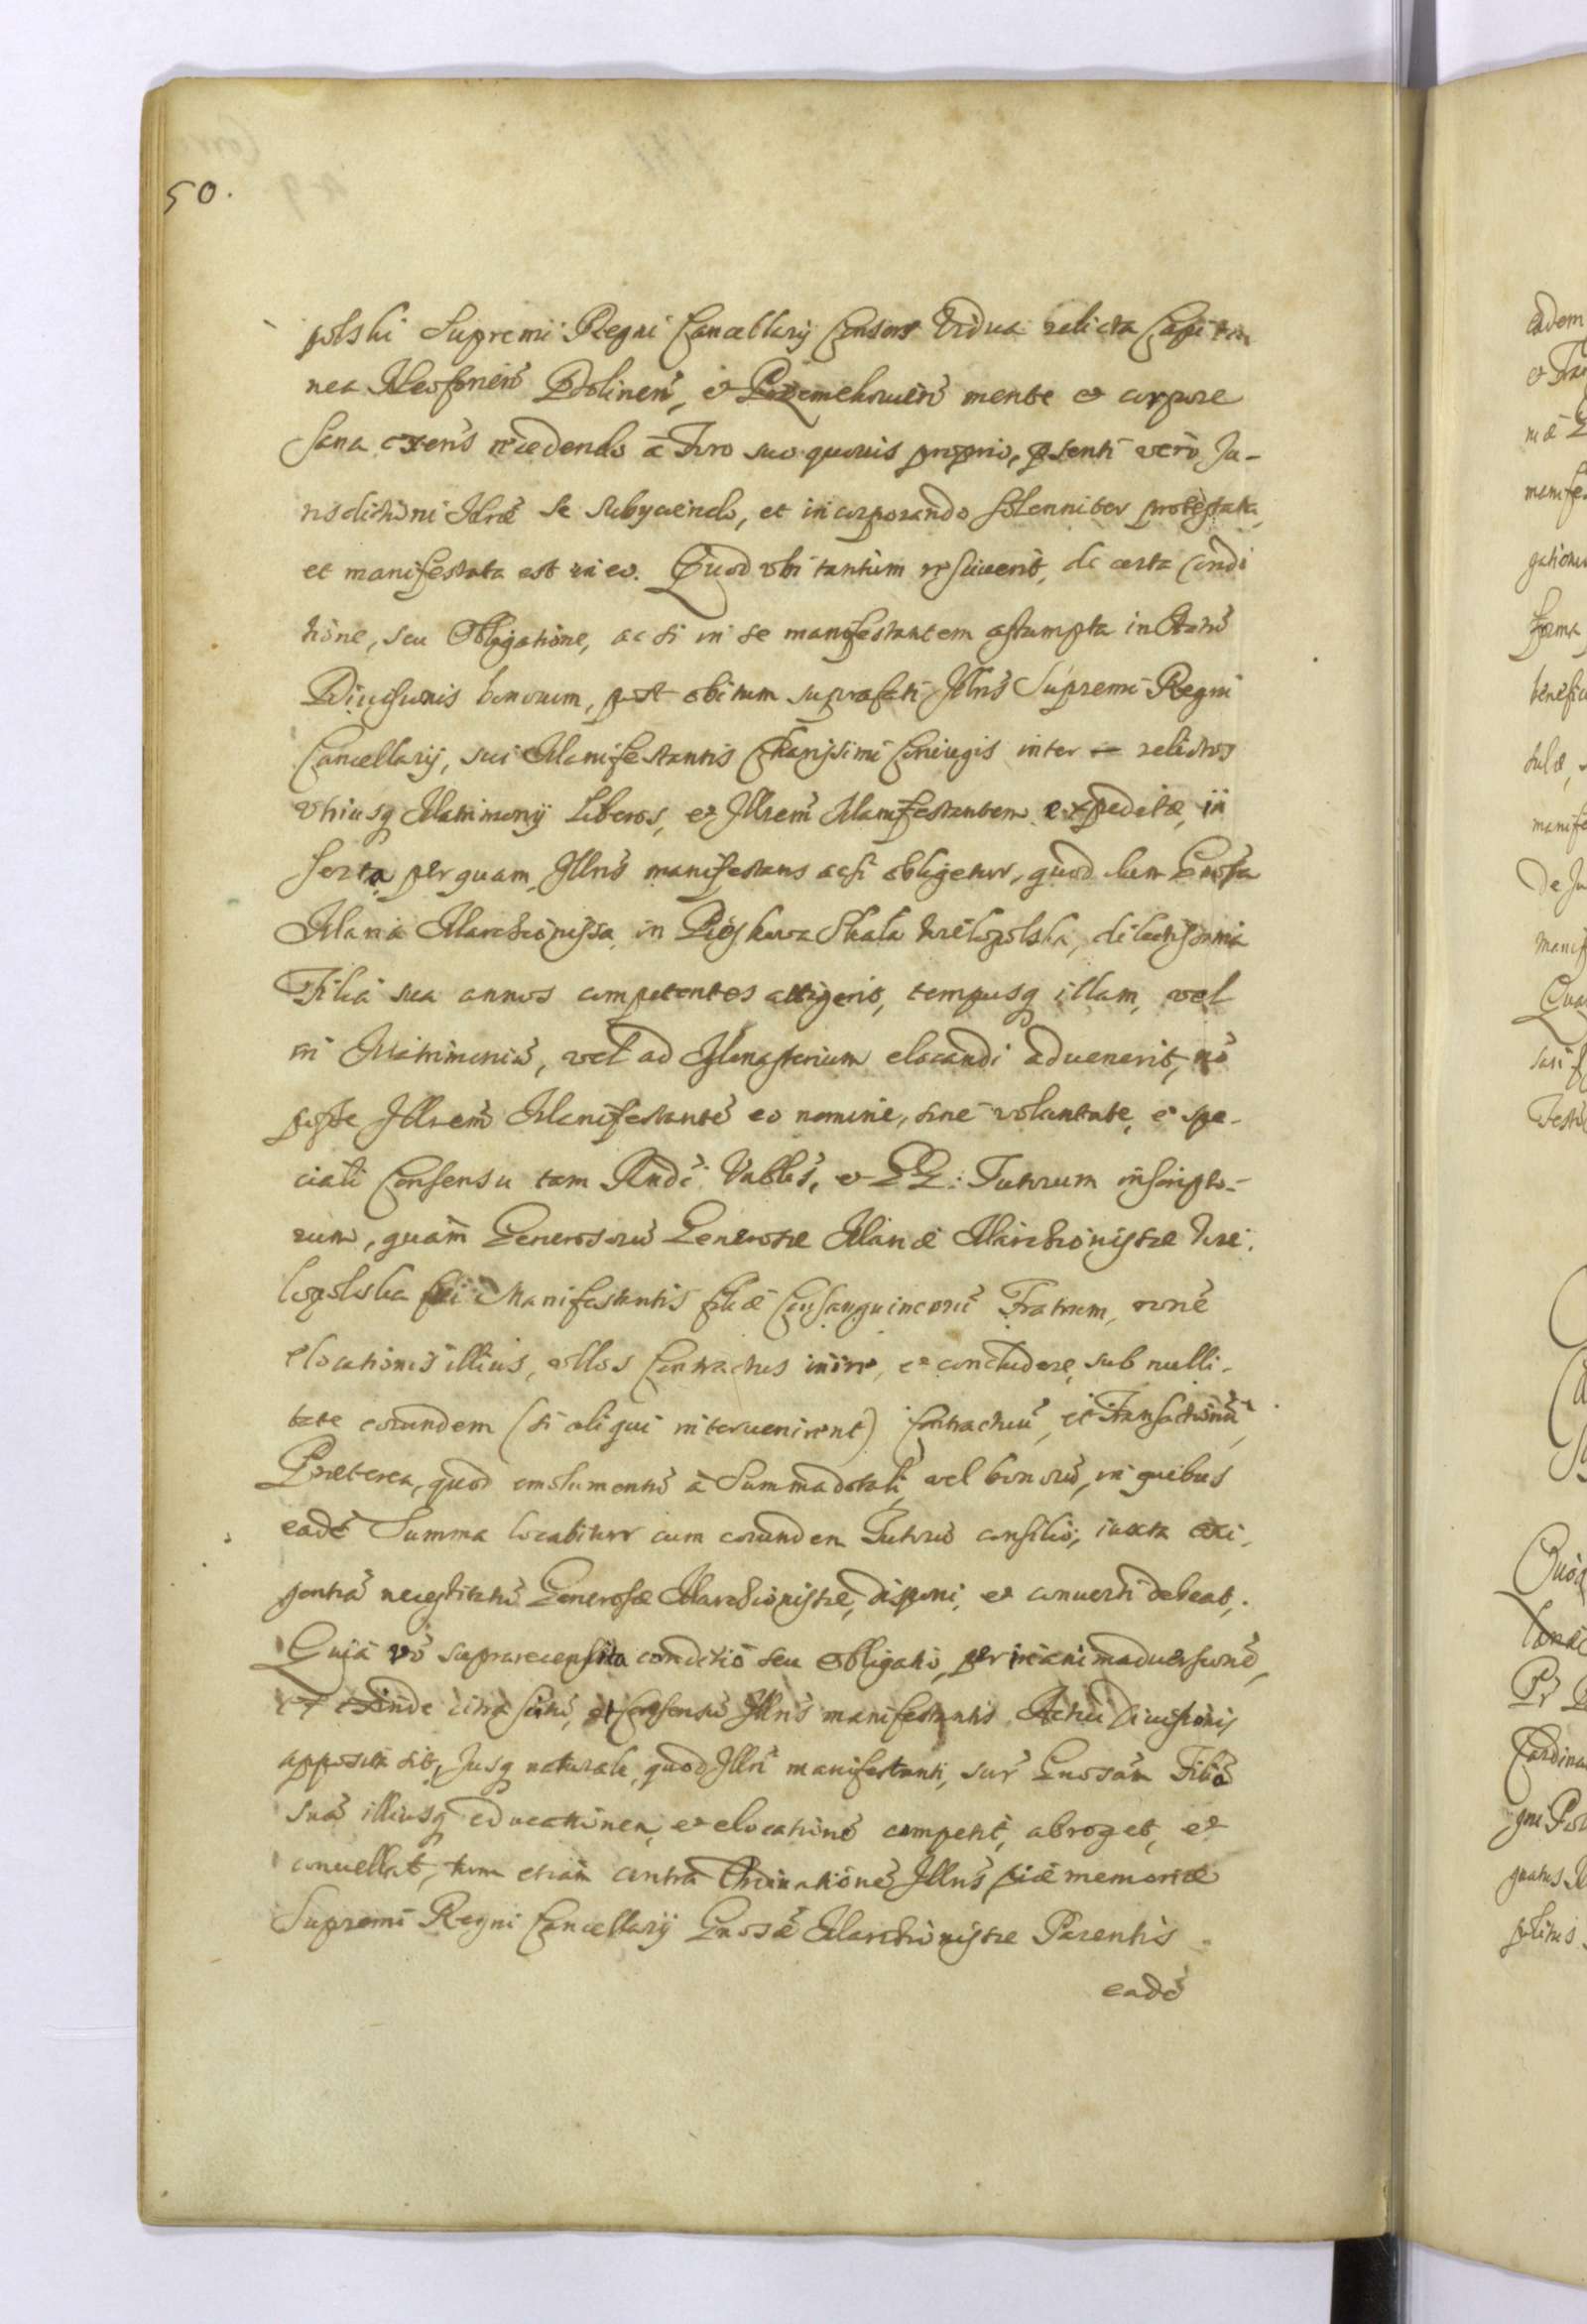 50.
polski Supremi Regni Cancellarij Consors Vidua relicta Capita
nea Neoforień Bdolinen̄, et mente et corpore
sana exens recedendo à Foro suo quouis proprio, pśenti verò Ju-
risdictioni se subyciendo, et incorporando solenniter protestata,
et manifestata est in eo. Quod vbi tantùm resciuerit, de certa Condi
tione, seu Obligatione, ac si in se manifestantem assumpta in Actū
Diuisionis bonorum, post obitum suprafati Jllris Supremi Regni
Cancellarij, sui Manifestantis Charissimi Coniugis inter relictos
vtriusq Matrimonij Liberos, et Jllrem̄ Manifestantem expeditæ, in
serta per quam Jllris manifestans acsi obligetur, quod dum Gnosa
Maria Marchionissa in Pieskowa Skala Wielopolska, dilectissima
Filia sua annos competentes attigerit, tempusq illam, vel
in Matrimoniū, vel ad Monasterium elocandi aduenerit, nō
posse Jllrem̄ Manifestantē eo nomine, sine voluntate, et spe-
ciali Consensu tam Rndi Vnblis, et GG: Tutorum inscripto-
rum, quàm Generosorū Generosæ Mariæ Marchionissæ Wie-
lopolska sui Manifestantis filiæ Consanguineorū Fratrum, ronē
elocationis illius, vllos Contractus inire, et concludere, sub nulli-
tate eorundem (si aliqui interuenirent) Contractuū, et Transactionū,
Præterea, quod emolumentū à Summa dotali, vel bonorū, in quibus
eadē Summa locabitur cum eorundem Tutorū consilio, iuxta exi-
gentiā necessitatū Generosæ Marchionissæ, disponi, et conuerti debeat,
Quia vō suprarecensita conditiō seu obligatio, per inanimaduersionē,
et exinde citra scitū, et Consensū Jllris manifestantis Actui Diuisionis
apposita sit, Jusq naturale, quod Jllri manifestanti, sup̄ Gnosam Filiā
suā illiusq educationem, et elocationē competit, abroget, et
conuellat, tum etiàm contra Ordinationē Jllris piæ memoriæ
Supremi Regni Cancellarij Gnosæ Marchionissæ Parentis
eadē